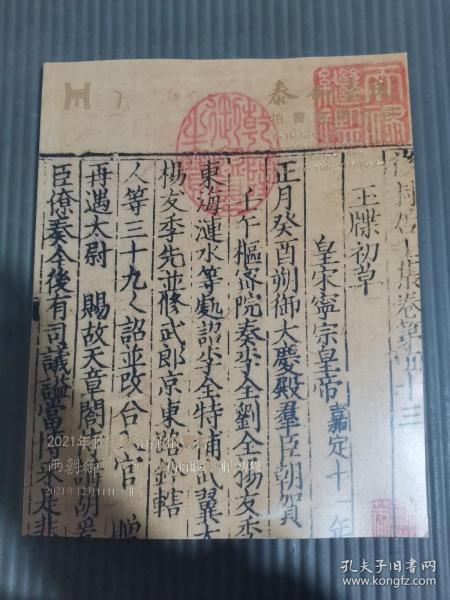 泰和嘉
拍賣
卷第四十三
玉牒初草
皇宋寧宗皇帝 嘉定十一年
正月癸酉朔御大慶殿羣臣朝賀
壬午樞密院奏李全劉全楊友季
東海漣水等處詔李全特補武翼大
楊友季先並修武郎京東鈐轄
人等三十九人詔並改合入官 贈
再遇太尉 賜故天章閣 胡瑗
臣僚奏全後有司議謚當博采是非
2021年秋
兩朝御
2021年12月11日
孔夫子旧书网
www.kongfz.com